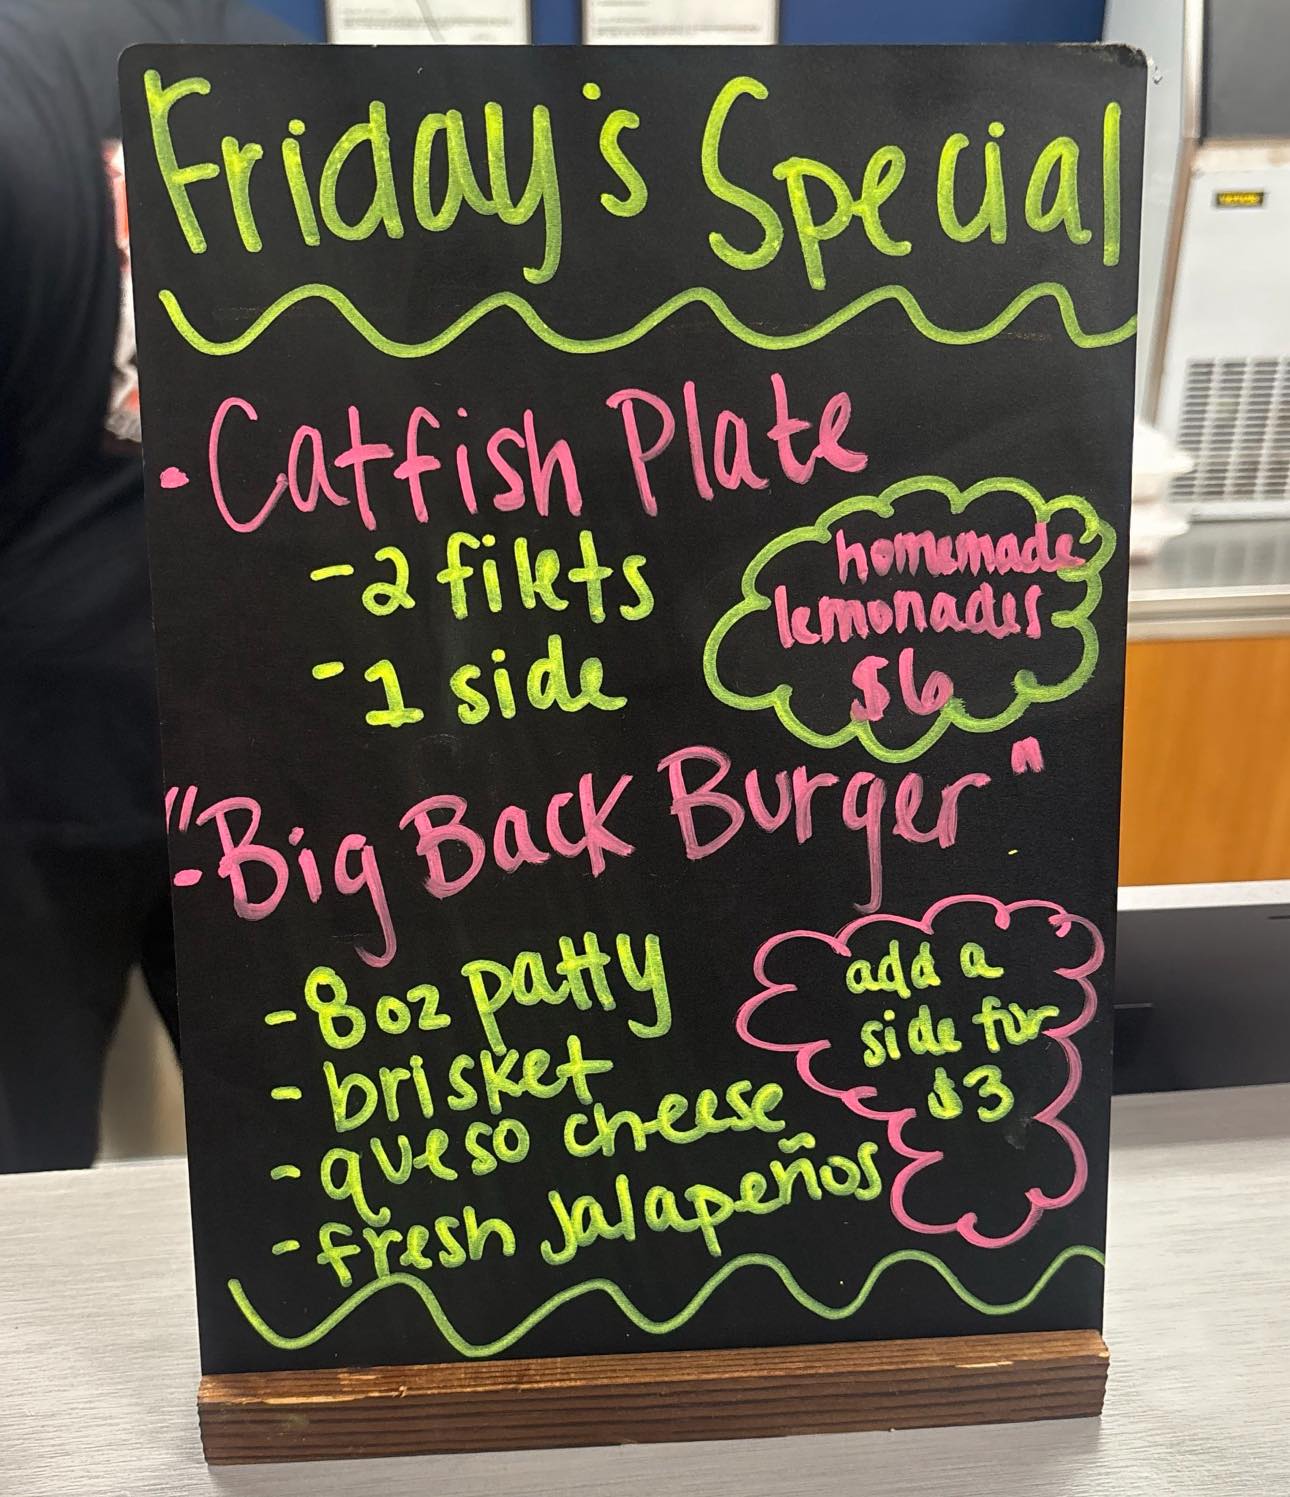 Friday's Special
• Catfish Plate
- 2 filets
- 1 side
homemade
lemonades
$6
• "Big Back Burger"
- 8oz patty
- brisket
- queso cheese
- fresh jalapeños
add a
side for
$3